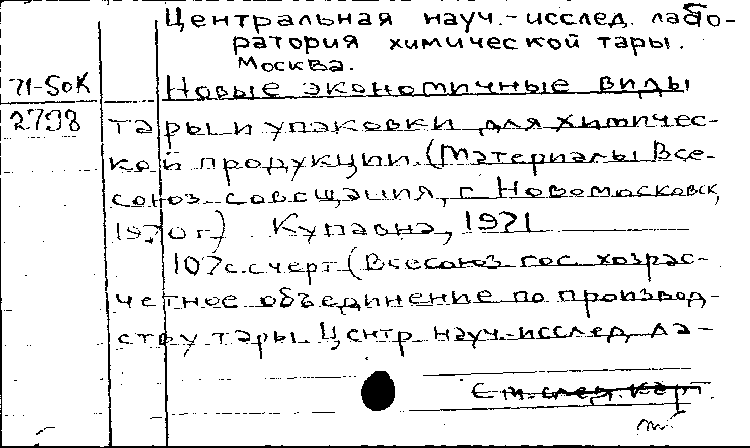 Центральная науч.-исслед. лабо-
ратория химической тары.
Москва.
71-50К
Новые экономичные виды
2798
тары и упаковки для химичес-
кой продукции. (Материалы Все-
союз. совещания, г. Новомосковск,
1970 г.) Купавна, 1971
107с. с черт. (Всесоюз. гос. хозрас-
четное объединение по производ-
ству тары. Центр. науч.-исслед. ла-
См. след. карт.